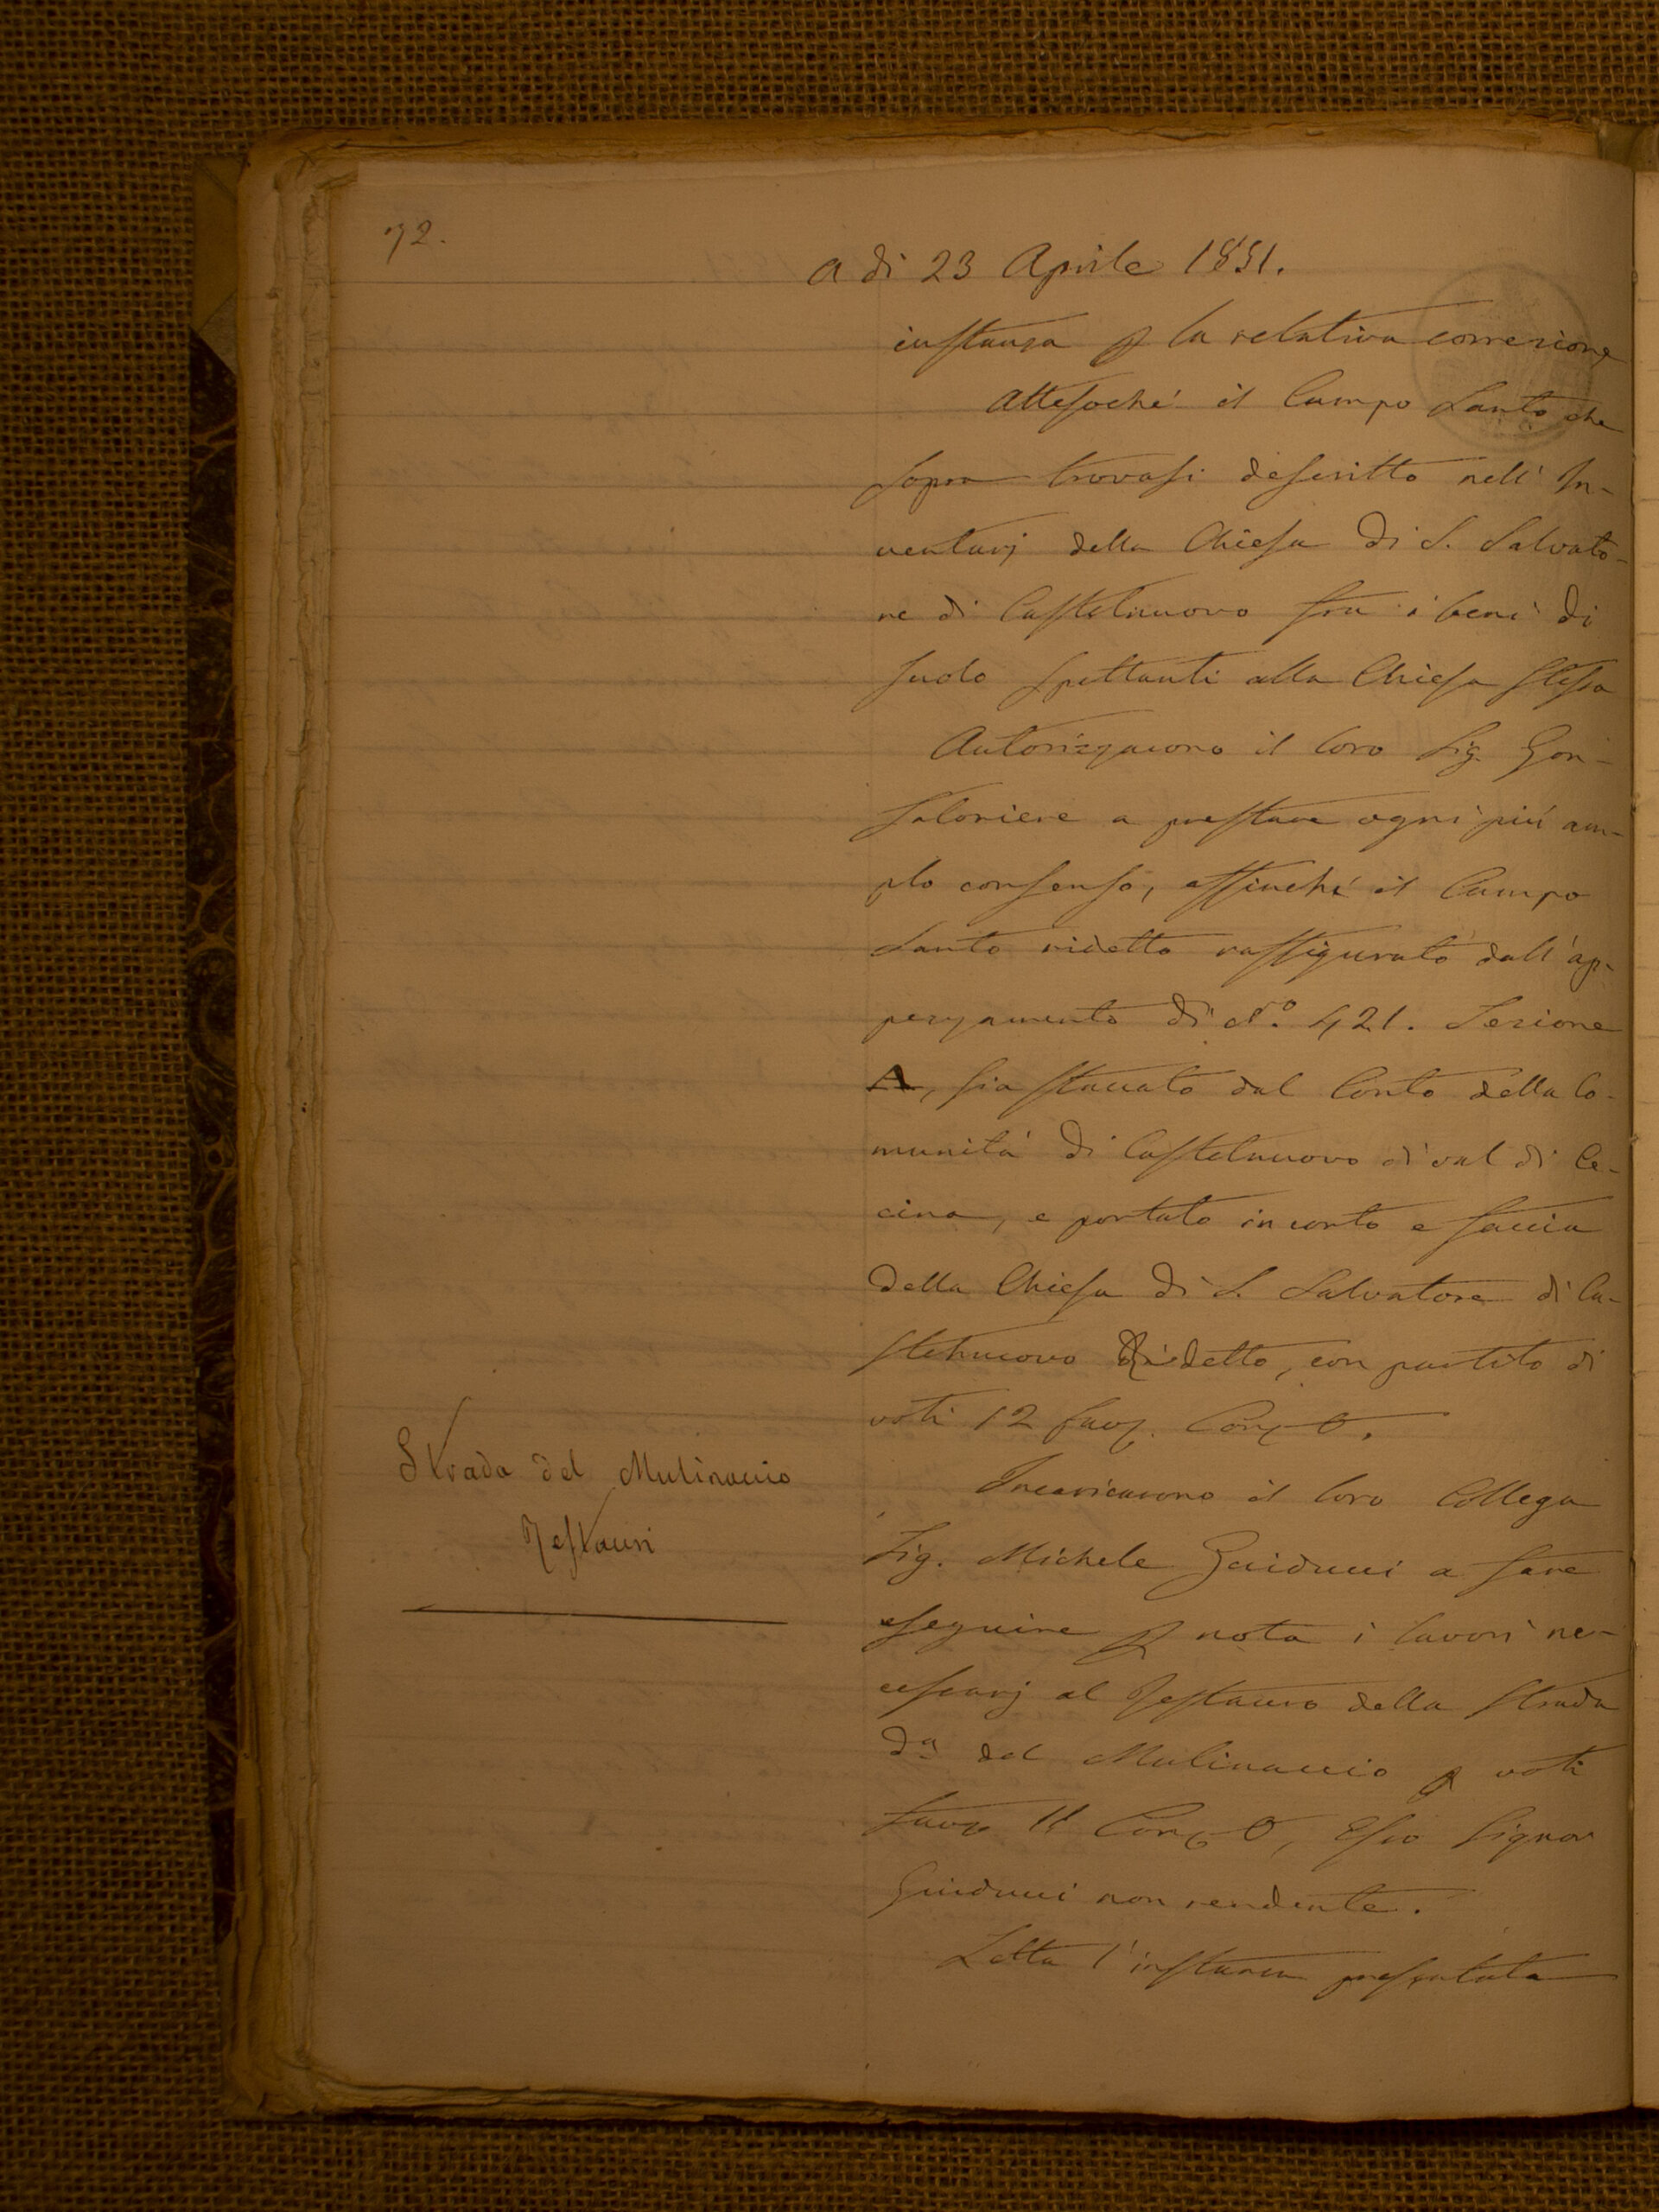 72.
A dì 23 Aprile 1851.
instanza p la relativa correzione
Attesoché il Campo Santo che
sopra trovasi descritto nell' In-
ventarj della Chiesa di S. Salvato-
re di Castelnuovo fra i beni di
suolo spettanti alla Chiesa stessa
Autorizzarono il loro Sig. Gon-
faloniere a prestare ogni più am-
plo consenso, affinché il Campo
Santo ridetto raffigurato dall'ap-
pezzamento di N.º 421. Sezione
A, sia staccato dal Conto della Co-
munità di Castelnuovo di val di Ce-
cina, e portato in conto e faccia
della Chiesa di S. Salvatore di Ca-
stelnuovo Ridetto, con partito di
voti 12 fav. Con. 0.
Strada del Mulinaccio
Restauri
Incaricarono il loro Collega
Sig. Michele Guiducci a fare
eseguire p nota i lavori ne-
cessarj al Restauro della Strada
da del Mulinaccio p voti
fav. 11 Con. 0, Esso Signor
Guiducci non rendente.
Letta l'instanza presentata